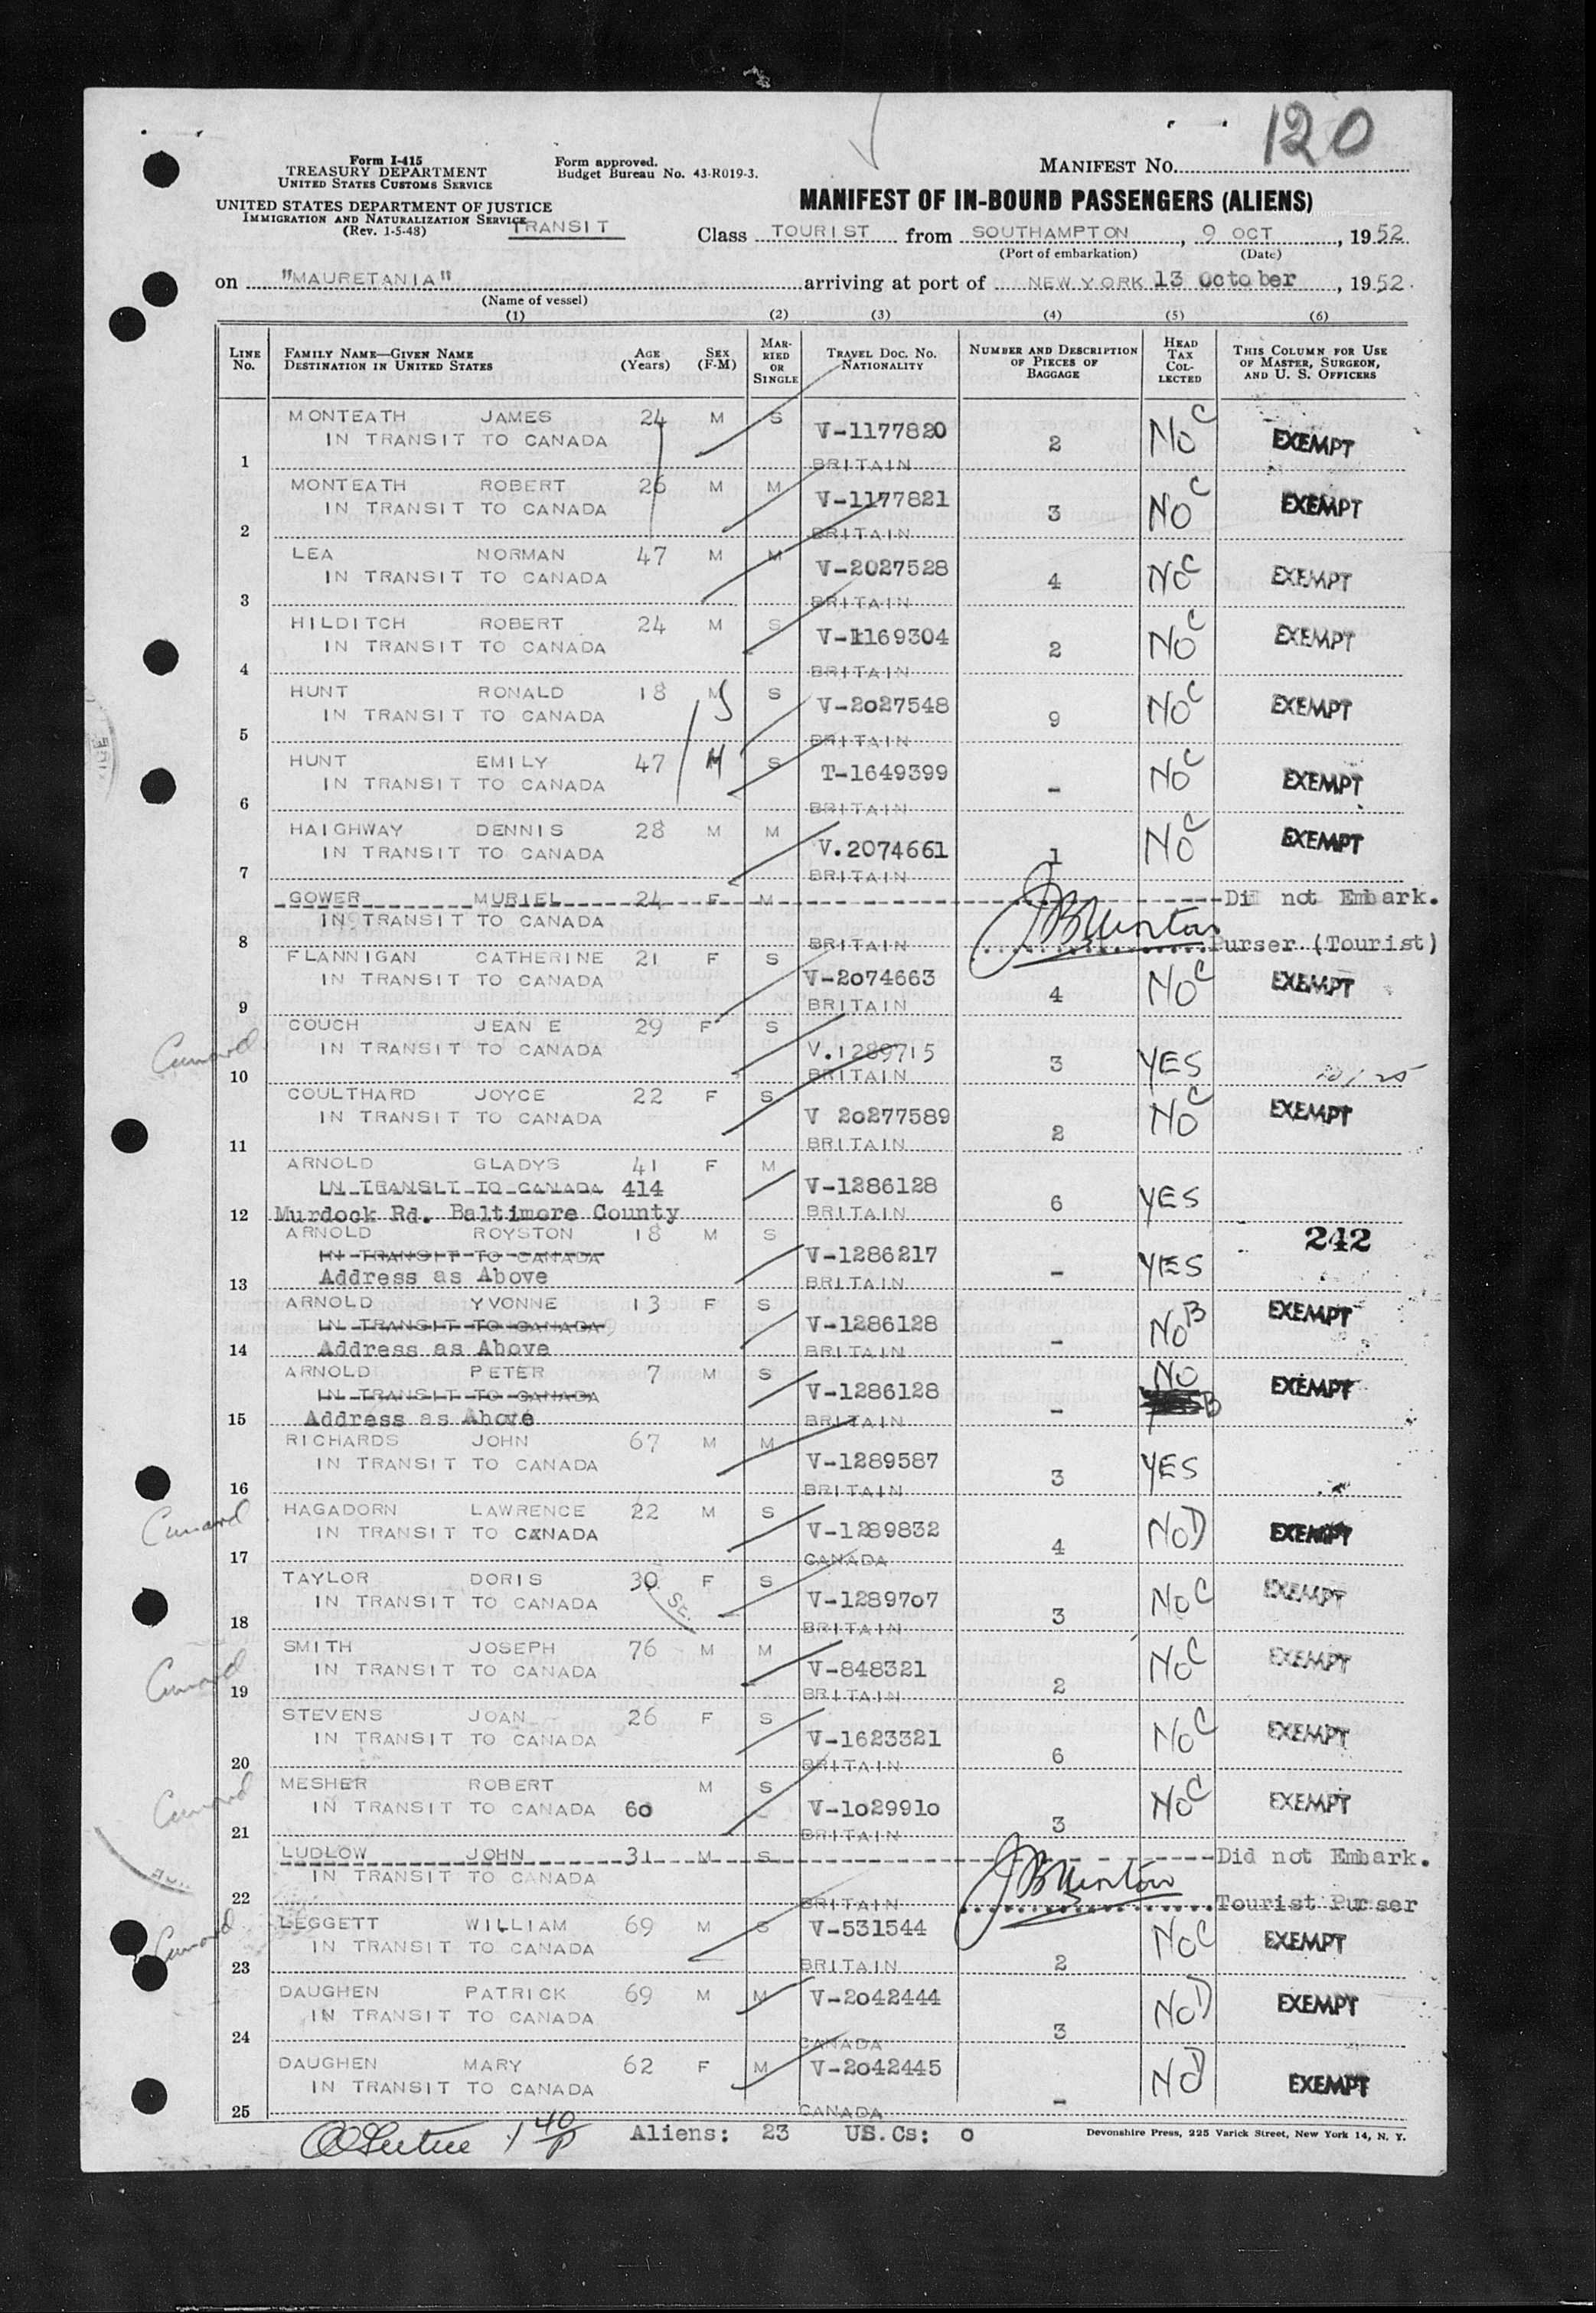 120
Form I-415
TREASURY DEPARTMENT
UNITED STATES CUSTOMS SERVICE
Form approved.
Budget Bureau No. 43-R019-3.
MANIFEST No.
UNITED STATES DEPARTMENT OF JUSTICE
IMMIGRATION AND NATURALIZATION SERVICE
(Rev. 1-5-48)
TRANSIT
MANIFEST OF IN-BOUND PASSENGERS (ALIENS)
Class TOURIST from SOUTHAMPTON, 9 OCT, 1952
(Port of embarkation) (Date)
on "MAURETANIA" arriving at port of NEW YORK 13 October, 1952.
(Name of vessel)
(1) (2) (3) (4) (5) (6)
LINE No. FAMILY NAME—GIVEN NAME DESTINATION IN UNITED STATES AGE (Years) SEX (F-M) MARRIED OR SINGLE TRAVEL DOC. No. NATIONALITY NUMBER AND DESCRIPTION OF PIECES OF BAGGAGE HEAD TAX COLLECTED THIS COLUMN FOR USE OF MASTER, SURGEON, AND U. S. OFFICERS
MONTEATH JAMES 24 M S V-1177820 2 No C EXEMPT
IN TRANSIT TO CANADA
1 BRITAIN
MONTEATH ROBERT 26 M M V-1177821 3 No C EXEMPT
IN TRANSIT TO CANADA
2 BRITAIN
LEA NORMAN 47 M M V-2027528 4 No C EXEMPT
IN TRANSIT TO CANADA
3 BRITAIN
HILDITCH ROBERT 24 M S V-1169304 2 No C EXEMPT
IN TRANSIT TO CANADA
4 BRITAIN
HUNT RONALD 18 M S S V-2027548 9 No C EXEMPT
IN TRANSIT TO CANADA
5 BRITAIN
HUNT EMILY 47 M S T-1649399 - No C EXEMPT
IN TRANSIT TO CANADA
6 BRITAIN
HAIGHWAY DENNIS 28 M M V.2074661 1 No C EXEMPT
IN TRANSIT TO CANADA
7 BRITAIN
GOWER MURIEL 24 F M Did not Embark.
IN TRANSIT TO CANADA
8 BRITAIN Purser (Tourist)
FLANNIGAN CATHERINE 21 F S V-2074663 4 No C EXEMPT
IN TRANSIT TO CANADA
9 BRITAIN
COUCH JEAN E 29 F S V.1289715 3 YES
Cunard IN TRANSIT TO CANADA
10 BRITAIN
COULTHARD JOYCE 22 F S V 20277589 2 No C EXEMPT
IN TRANSIT TO CANADA
11 BRITAIN
ARNOLD GLADYS 41 F M V-1286128 6 YES
IN TRANSIT TO CANADA 414
12 Murdock Rd. Baltimore County BRITAIN
ARNOLD ROYSTON 18 M S V-1286217 - YES 242
IN TRANSIT TO CANADA
13 Address as Above BRITAIN
ARNOLD YVONNE 13 F S V-1286128 - No B EXEMPT
IN TRANSIT TO CANADA
14 Address as Above BRITAIN
ARNOLD PETER 7 M S V-1286128 - No B EXEMPT
IN TRANSIT TO CANADA
15 Address as Above BRITAIN
RICHARDS JOHN 67 M M V-1289587 3 YES
IN TRANSIT TO CANADA
16 BRITAIN
HAGADORN LAWRENCE 22 M S V-1289832 4 No D EXEMPT
Cunard IN TRANSIT TO CANADA
17 CANADA
TAYLOR DORIS 30 F S V-1289707 3 No C EXEMPT
IN TRANSIT TO CANADA
18 BRITAIN
SMITH JOSEPH 76 M M V-848321 2 No C EXEMPT
Cunard IN TRANSIT TO CANADA
19 BRITAIN
STEVENS JOAN 26 F S V-1623321 6 No C EXEMPT
IN TRANSIT TO CANADA
20 BRITAIN
MESHER ROBERT M S V-1029910 3 No C EXEMPT
Cunard IN TRANSIT TO CANADA 60
21 BRITAIN
LUDLOW JOHN 31 M S Did not Embark.
IN TRANSIT TO CANADA
22 BRITAIN Tourist Purser
LEGGETT WILLIAM 69 M S V-531544 2 No C EXEMPT
Cunard IN TRANSIT TO CANADA
23 BRITAIN
DAUGHEN PATRICK 69 M M V-2042444 3 No D EXEMPT
IN TRANSIT TO CANADA
24 CANADA
DAUGHEN MARY 62 F M V-2042445 - No D EXEMPT
IN TRANSIT TO CANADA
25 CANADA
1 40/P Aliens: 23 US.Cs: 0 Devonshire Press, 225 Varick Street, New York 14, N. Y.